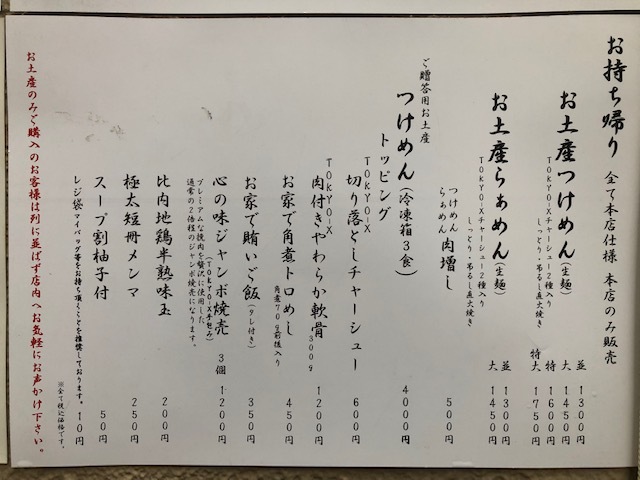 お持ち帰り 全て本店仕様 本店のみ販売
お土産つけめん(生麺) 並 1300円
TOKYO-Xチャーシュー2種入り 大 1450円
しっとり・吊るし直火焼き 特 1600円
特大 1750円
お土産らぁめん(生麺) 並 1300円
TOKYO-Xチャーシュー2種入り 大 1450円
しっとり・吊るし直火焼き
つけめん
らぁめん 肉増し 500円
ご贈答用お土産
つけめん(冷凍箱3食) 4000円
トッピング
TOKYO-X
切り落としチャーシュー 600円
TOKYO-X
肉付きやわらか軟骨 300g 1200円
お家で角煮トロめし 450円
角煮70g前後入り
お家で賄いご飯(タレ付き) 350円
心の味ジャンボ焼売 3個 1200円
(TOKYO X手包み)
プレミアムな挽肉を贅沢に使用した
通常の2倍程のジャンボ焼売になります。
比内地鶏半熟味玉 200円
極太短冊メンマ 250円
スープ割柚子付 50円
レジ袋マイバッグ等をお持ち頂くことを推奨しております。 10円
※全て税込価格です。
お土産のみご購入のお客様は列に並ばず店内へお気軽にお声かけ下さい。